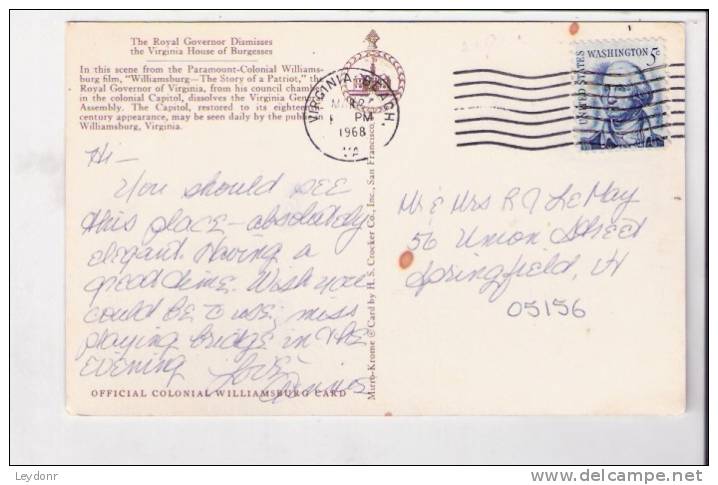 The Royal Governor Dismisses
the Virginia House of Burgesses
In this scene from the Paramount-Colonial Williams-
burg film, "Williamsburg—The Story of a Patriot," the
Royal Governor of Virginia, from his council cham
in the colonial Capitol, dissolves the Virginia Gen
Assembly. The Capitol, restored to its eighteen
century appearance, may be seen daily by the public
Williamsburg, Virginia.
VIRGINIA BEACH,
PM
1968
VA
UNITED STATES
WASHINGTON 5c
Hi—
You should see
this place—absolutely
elegant. Having a
great time. Wish you
could be c us, miss
playing bridge in the
evening
Love
Mr & Mrs R J LeMay
56 Union Street
Springfield, Vt
05156
OFFICIAL COLONIAL WILLIAMSBURG CARD
Mirro-Krome ® Card by H. S. Crocker Co., Inc., San Francisco
Leydonr
delcampe.net